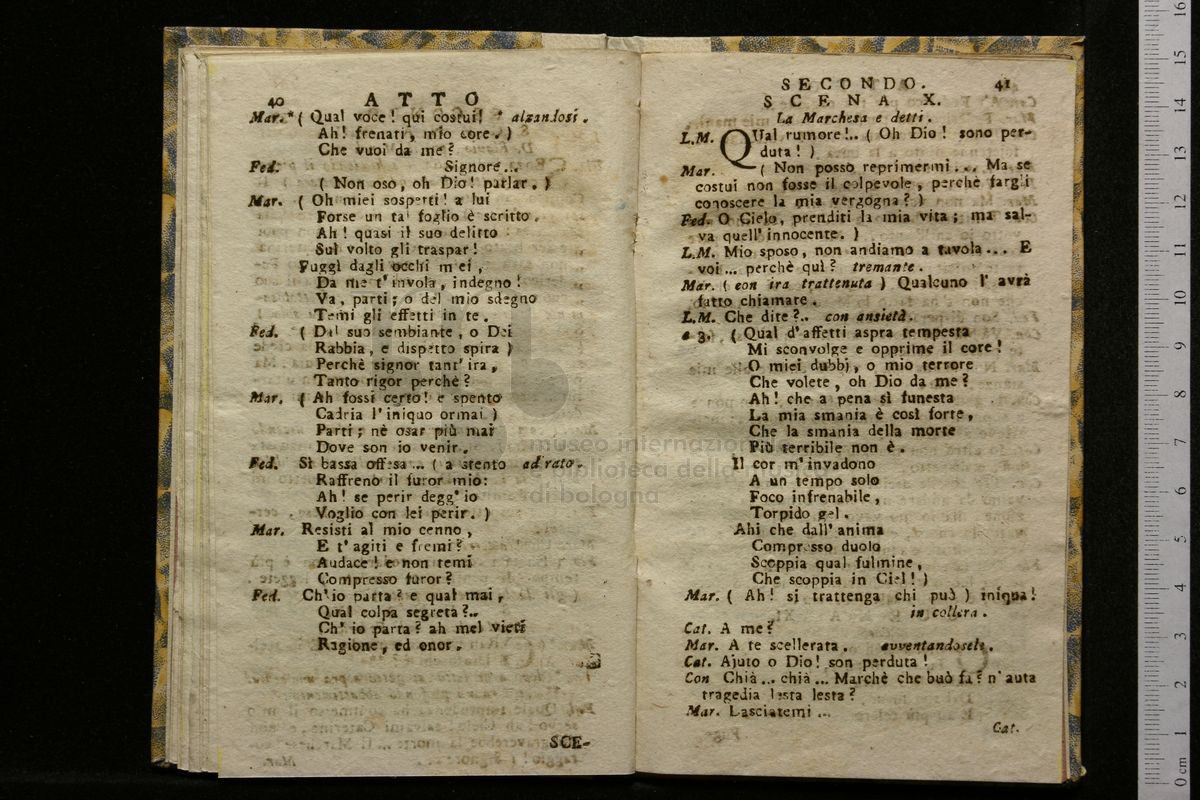 40 ATTO
Mar.* ( Qual voce! qui costui! * alzandosi.
Ah! frenati, mio core. )
Che vuoi da me?
Fed. Signore...
( Non oso, oh Dio! parlar. )
Mar. ( Oh miei sospetti! a lui
Forse un tal foglio è scritto.
Ah! quasi il suo delitto
Sul volto gli traspar!
Fuggi dagli occhi miei,
Da me t'invola, indegno!
Va, parti; o del mio sdegno
Temi gli effetti in te.
Fed. ( Dal suo sembiante, o Dei
Rabbia, e dispetto spira )
Perchè signor tant' ira,
Tanto rigor perchè?
Mar. ( Ah fossi certo! e spento
Cadria l'iniquo ormai )
Parti; nè osar più mai
Dove son io venir.
Fed. Sì bassa offesa... ( a stento adirato.
Raffreno il furor mio:
Ah! se perir degg' io
Voglio con lei perir. )
Mar. Resisti al mio cenno,
E t'agiti e fremi?
Audace! e non temi
Compresso furor?
Fed. Ch'io parta? e qual mai,
Qual colpa segreta?..
Ch' io parta? ah mel vieti
Ragione, ed onor.
SCE-
SECONDO. 41
SCENA X.
La Marchesa e detti.
L.M. QUal rumore!.. ( Oh Dio! sono per-
duta! )
Mar. ( Non posso reprimermi... Ma se
costui non fosse il colpevole, perchè fargli
conoscere la mia vergogna? )
Fed. O Cielo, prenditi la mia vita; ma sal-
va quell' innocente. )
L.M. Mio sposo, non andiamo a tavola... E
voi... perchè quì? tremante.
Mar. ( con ira trattenuta ) Qualcuno l' avrà
fatto chiamare.
L.M. Che dite?.. con ansietà.
a 3. ( Qual d'affetti aspra tempesta
Mi sconvolge e opprime il core!
O miei dubbj, o mio terrore
Che volete, oh Dio da me?
Ah! che a pena sì funesta
La mia smania è così forte,
Che la smania della morte
Più terribile non è.
Il cor m'invadono
A un tempo solo
Foco infrenabile,
Torpido gel.
Ahi che dall' anima
Compresso duolo
Scoppia qual fulmine,
Che scoppia in Ciel! )
Mar. ( Ah! si trattenga chi può ) iniqua!
in collera.
Cat. A me?
Mar. A te scellerata. avventandosele.
Cat. Ajuto o Dio! son perduta!
Con Chià... chià... Marchè che buò fa? n'auta
tragedia lesta lesta?
Mar. Lasciatemi...
Cat.
museo internazionale
biblioteca della musica
di bologna